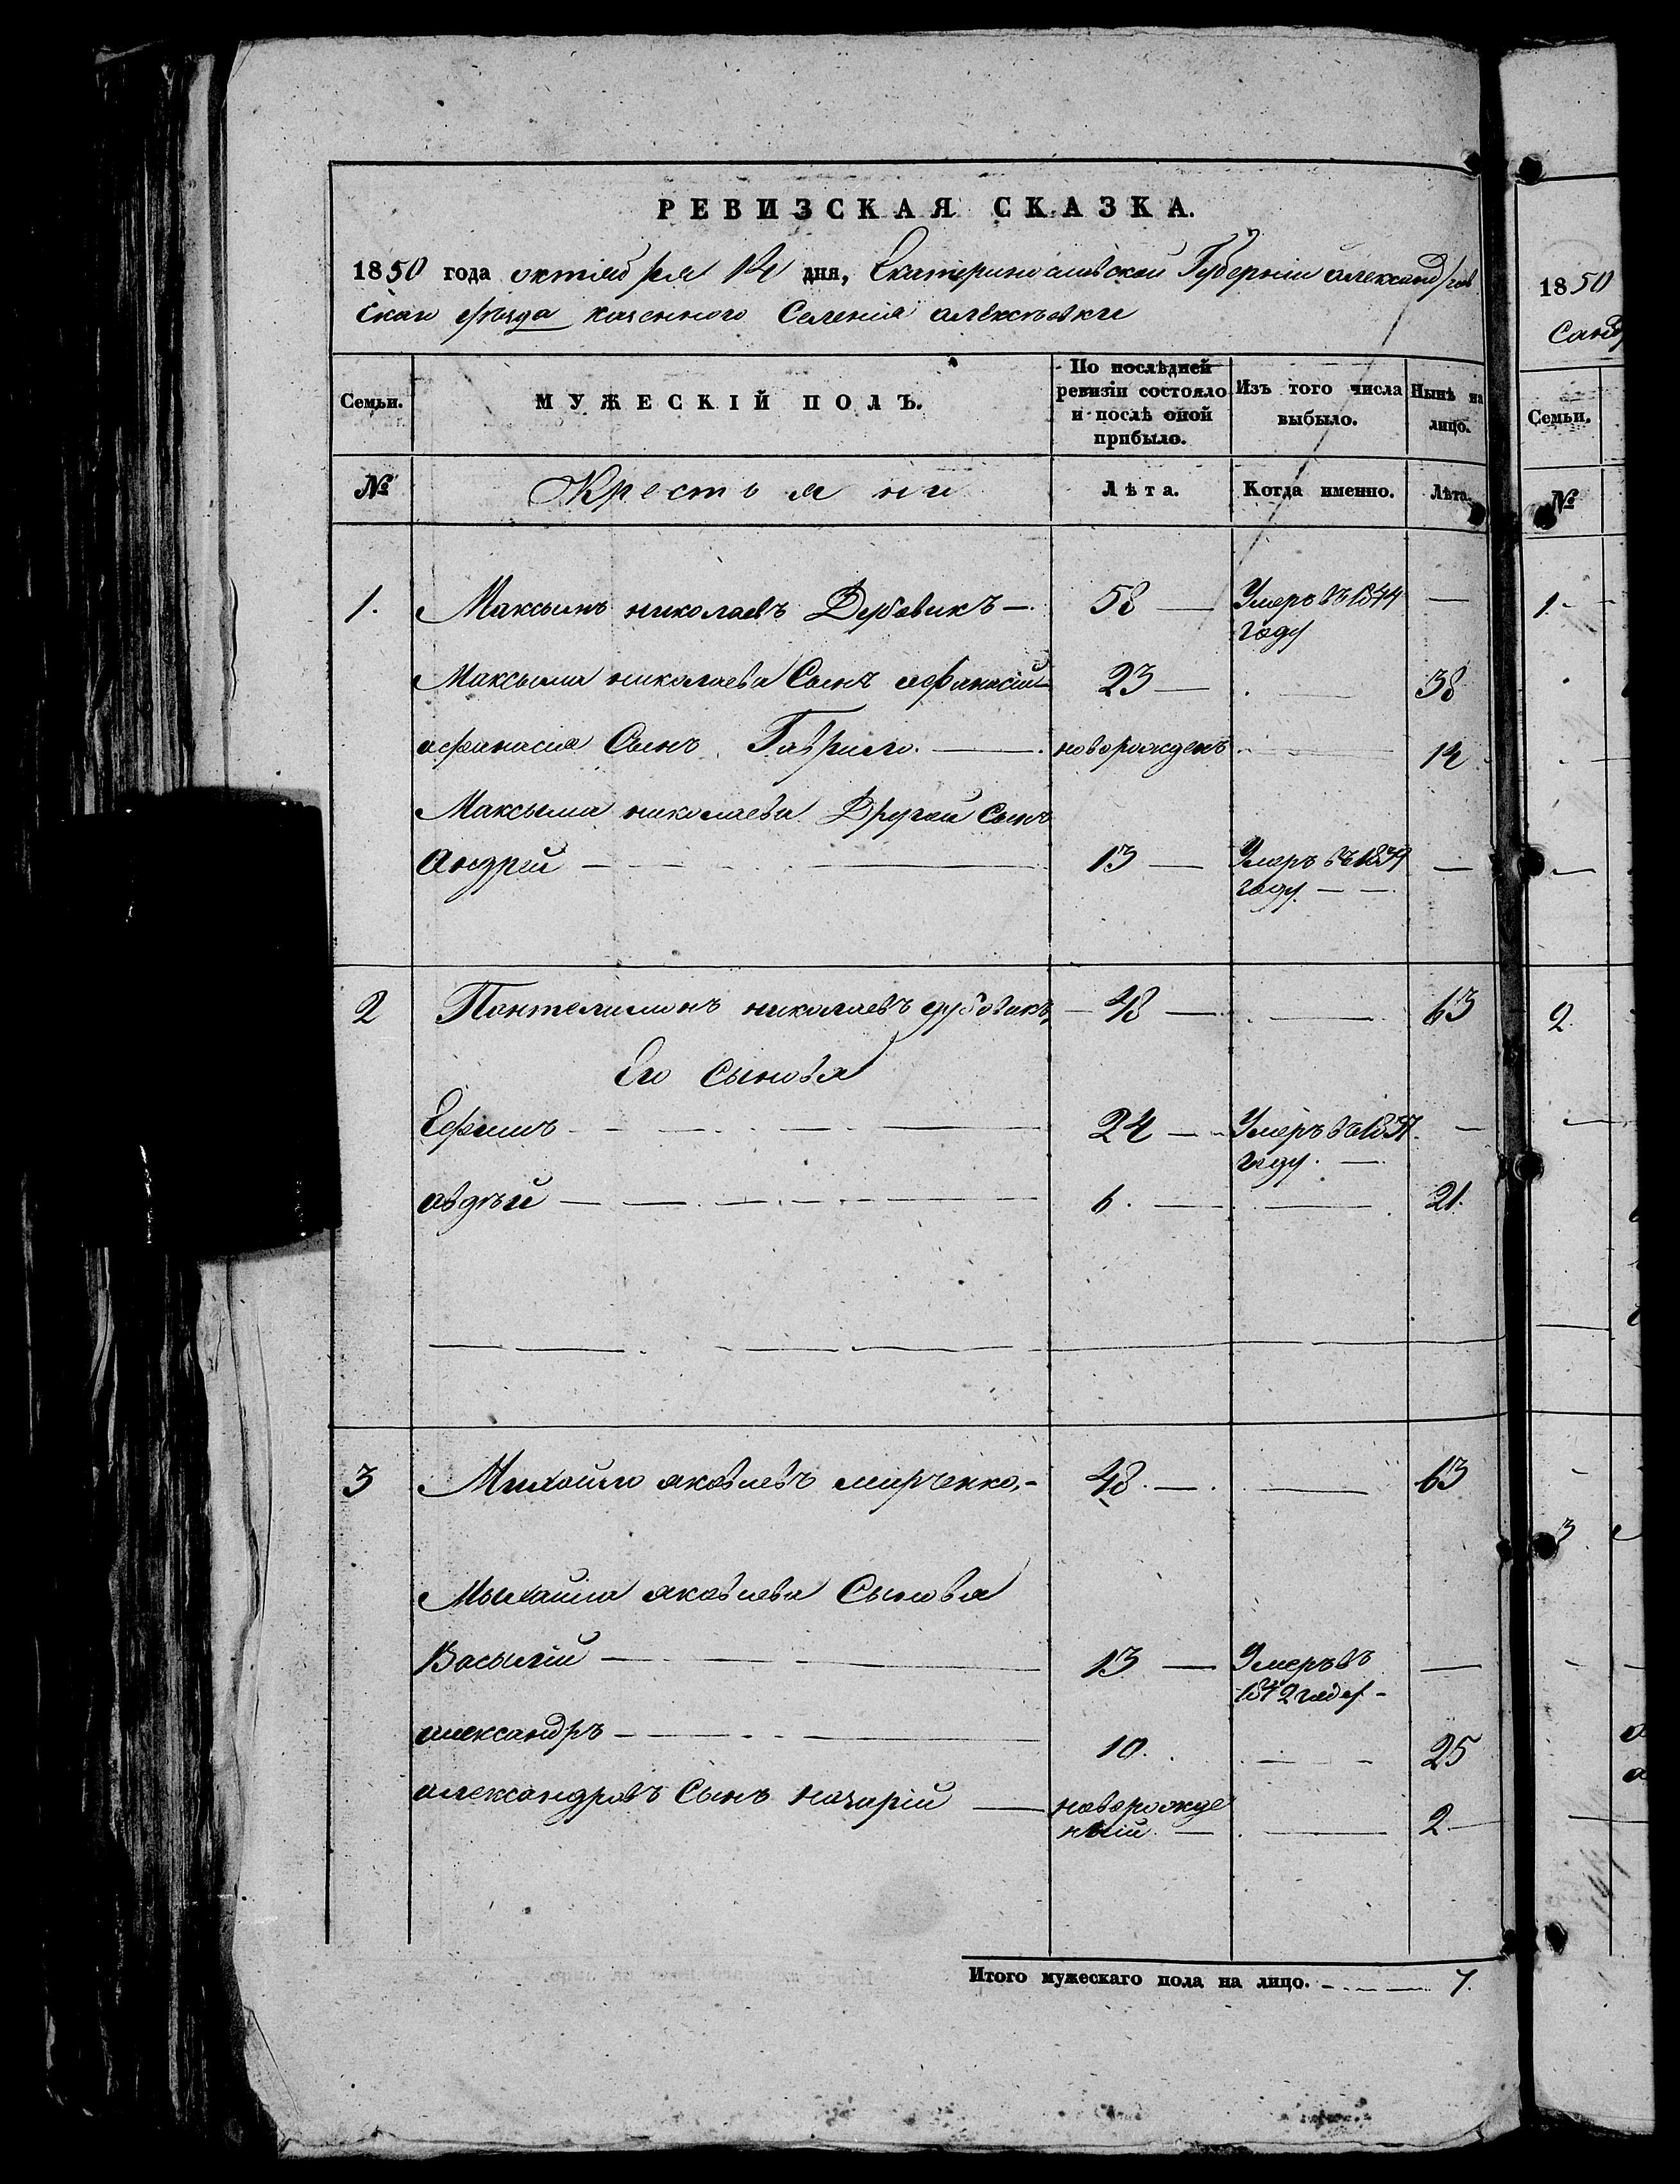 РЕВИЗСКАЯ СКАЗКА.
1850 года октября 14 дня, Екатеринославской Губерніи александров
скаго уѣзда казенного Селенія алексѣевки
Семьи. МУЖЕСКІЙ ПОЛЪ. По послѣдней ревизіи состояло и послѣ оной прибыло. Изъ того числа выбыло. Нынѣ на лицо.
№ Крестьяни Лѣта. Когда именно. Лѣта.
1. Максымъ николаевъ Дубовикъ — 58 — Умеръ въ 1844 —
году
Максыма николаева Сынъ афанасій 23 — — 38
афанасія Сынъ Гаврило. — новорожденъ — 14
Максыма николаева Другой Сынъ
Андрей — 13 — Умеръ въ 1839 —
году —
2 Пантелимонъ николаевъ дубовикъ — 48 — — 63
Его Сыновя
Ефимъ — 24 — Умеръ въ 1837 —
году. —
авдѣй — 6. — — 21.
3 Михайло яковлевъ мирченко — 48. — — 63
Мыхайла яковлева Сыновя
Васылій — 13 — Умеръ въ —
1842 году —
александръ — 10. — 25
александровъ Сынъ назарій — новорожде
ный — — 2
Итого мужескаго пола на лицо. — 7.
1850
Санд
Семьи.
№
1.
2.
3